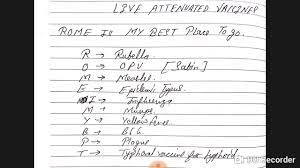 LIVE ATTENUATED VACCINES
ROME Is MY BEST Place To go.
R → Rubella
O → OPV [Sabin]
M → Measles
E → Epidemic Typus.
I → Influenza
M → Mumps
Y → Yellow fever
B → BCG
P → Plague
T → Typhoral vaccine for typhoid
Recorder